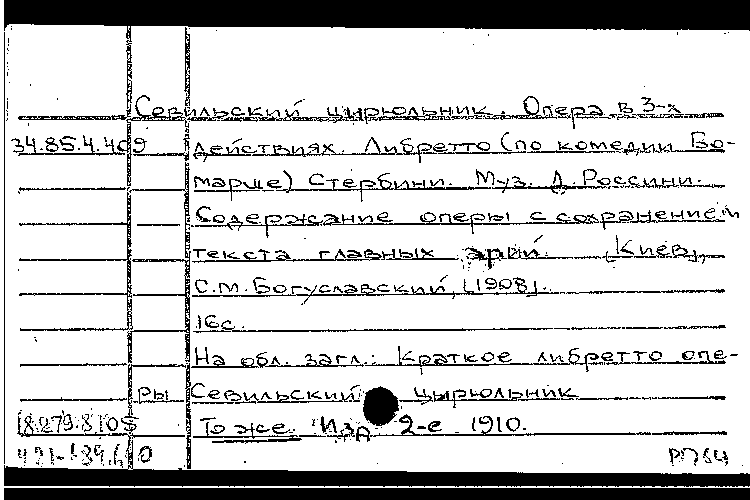 Севильский цырюльник. Опера в 3-х
34.85.4.409 действиях. Либретто (по комедии Бо-
марше) Стербини. Муз. Д. Россини.
Содержание оперы с сохранением
текста главных арий. [Киев],
С.М. Богуславский, [1908].
16с.
На обл. загл.: Краткое либретто опе-
ры Севильский цырюльник
18.279.8.105 То же. Изд 2-е 1910.